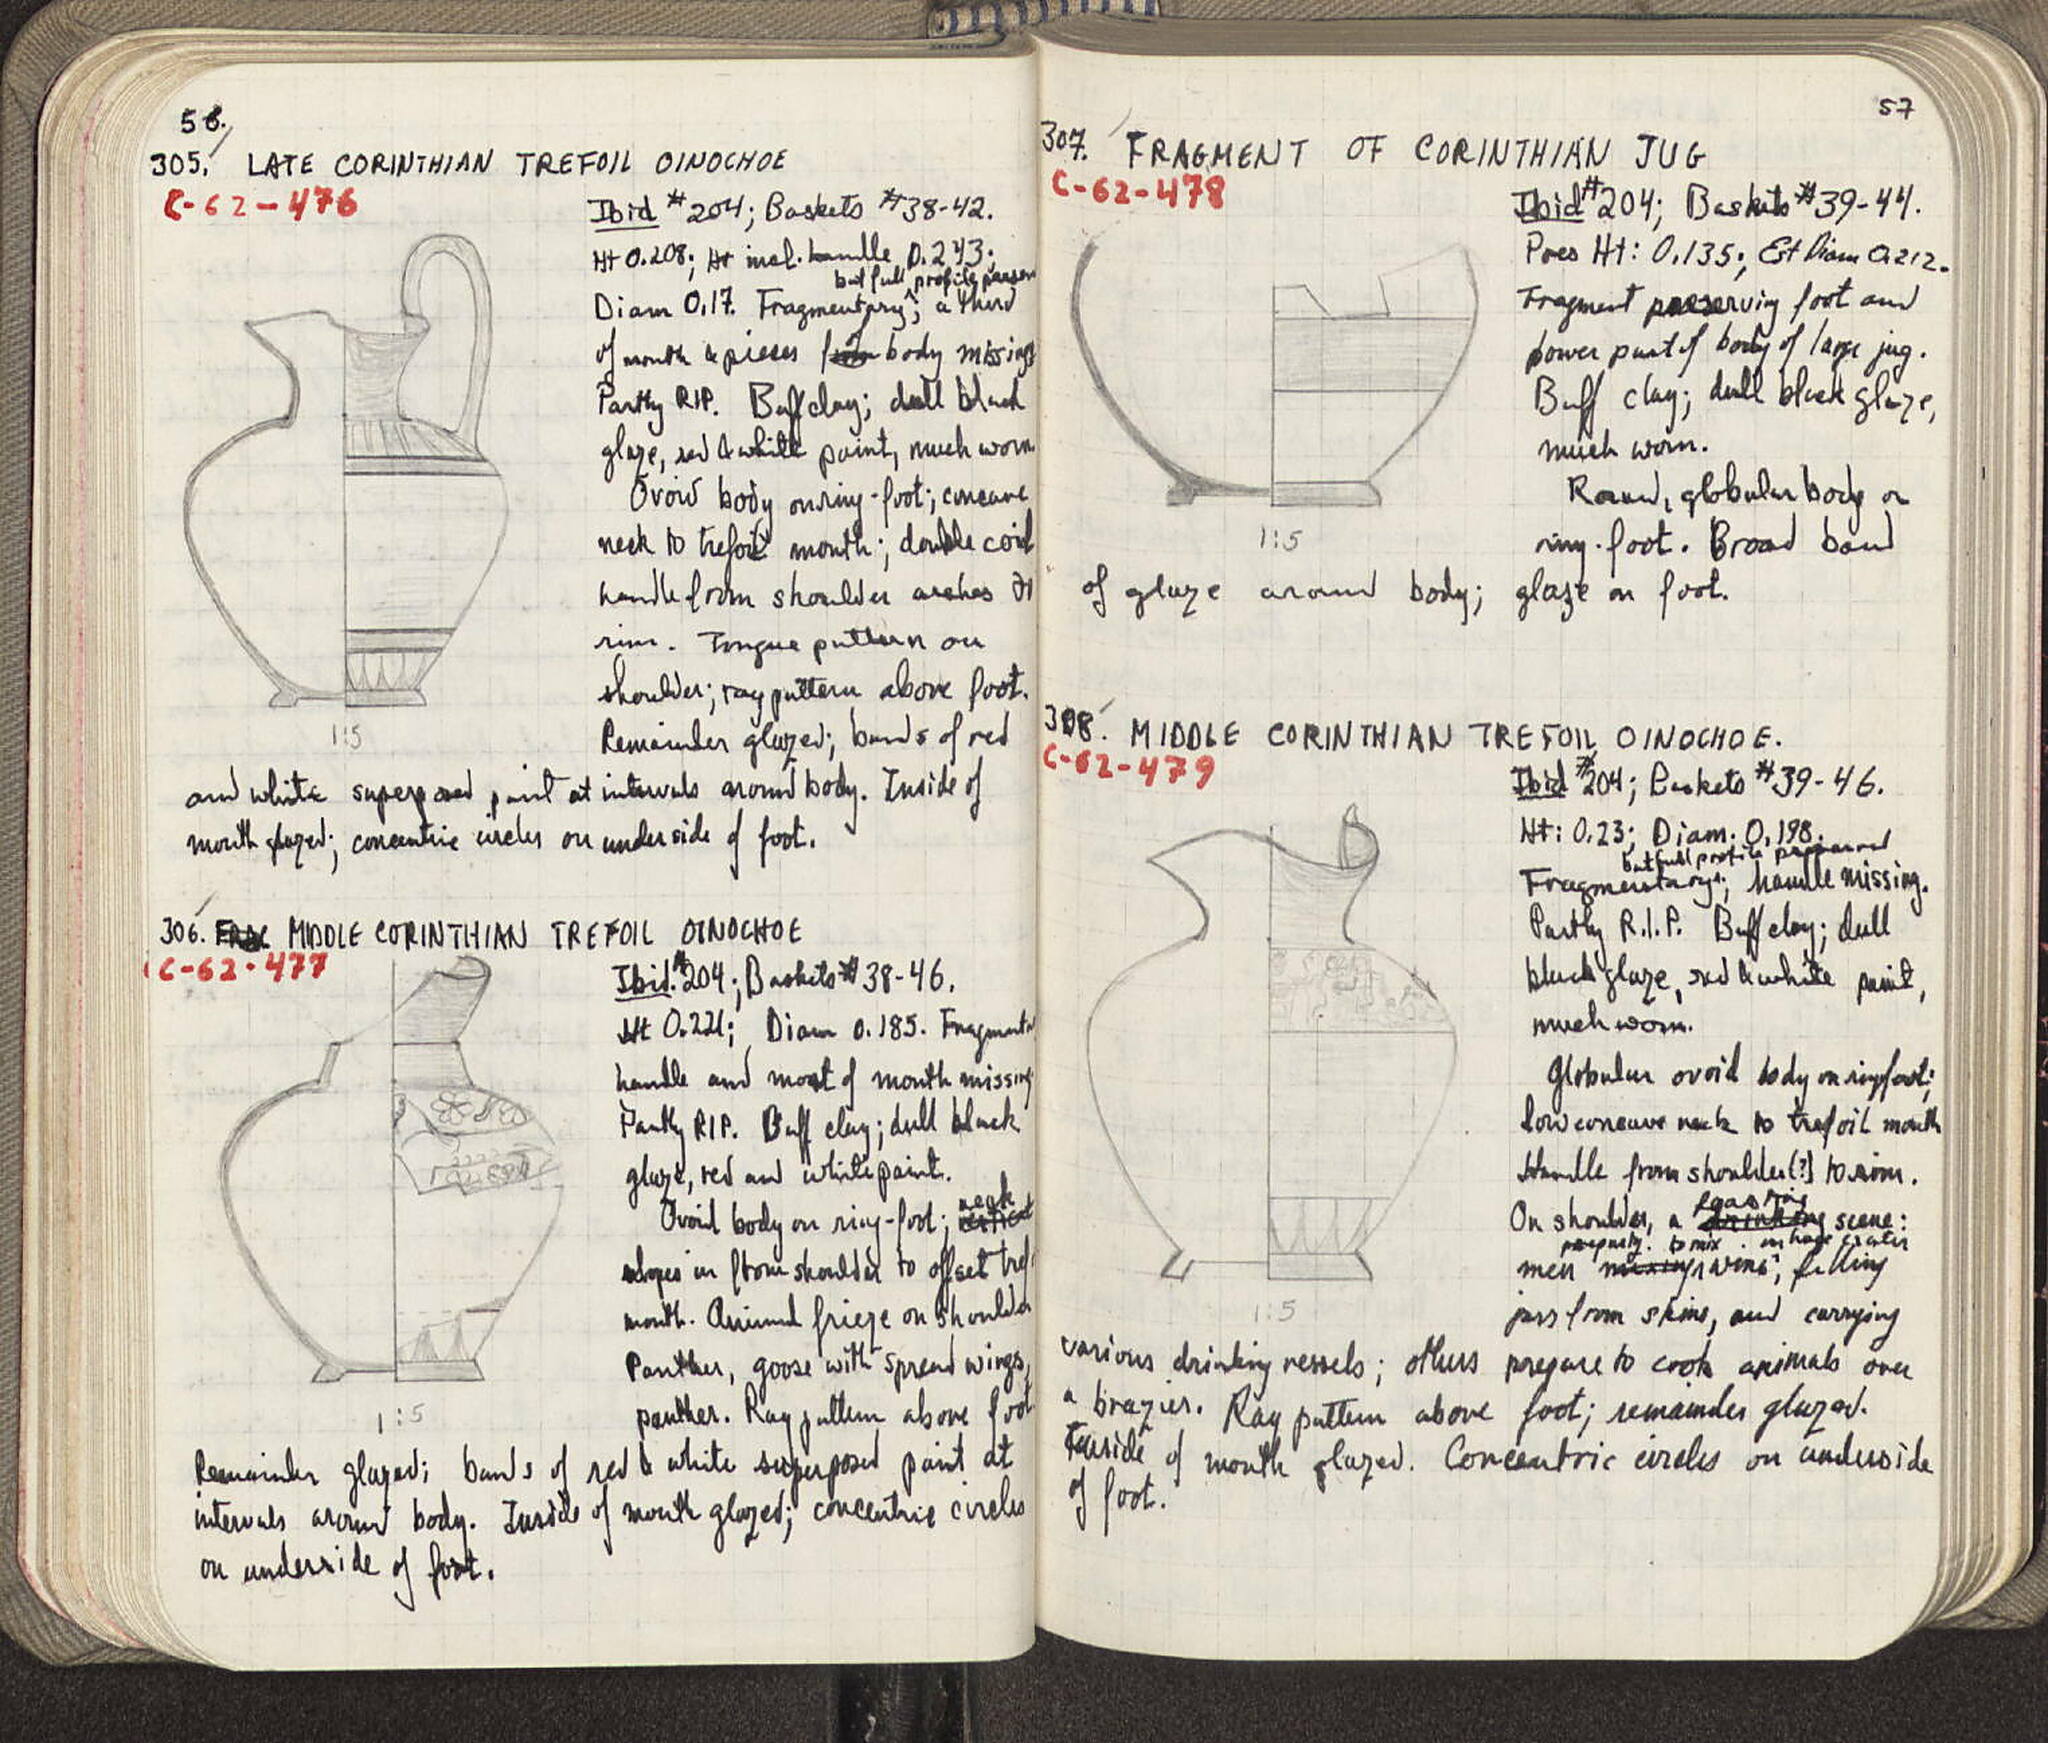 56.
305. LATE CORINTHIAN TREFOIL OINOCHOE
C-62-476
Ibid #204; Baskets #38-42.
Ht 0.208; Ht incl. handle 0.243;
but full profile preserv
Diam 0.17. Fragmentary; a third
of mouth & pieces body missing
Partly RIP. Buff clay; dull black
glaze, red & white paint, much worn
Ovoid body on ring-foot; concave
neck to trefoil mouth; double coil
handle from shoulder arches to
rim. Tongue pattern on
shoulder; ray pattern above foot.
Remainder glazed; bands of red
1:5
and white superposed paint at intervals around body. Inside of
mouth glazed; concentric circles on underside of foot.
306. MIDDLE CORINTHIAN TREFOIL OINOCHOE
C-62-477
Ibid. #204; Baskets #38-46.
Ht 0.221; Diam 0.185. Fragmenta
handle and most of mouth missing
Partly RIP. Buff clay; dull black
glaze, red and white paint.
neck
Ovoid body on ring-foot; vertical
slopes in from shoulder to offset tref
mouth. Animal frieze on shoulder
Panther, goose with spread wings,
panther. Ray pattern above foot
1:5
Remainder glazed; bands of red & white superposed paint at
intervals around body. Inside of mouth glazed; concentric circles
on underside of foot.
57
307. FRAGMENT OF CORINTHIAN JUG
C-62-478
Ibid #204; Baskets #39-44.
Pres Ht: 0.135; Est Diam 0.212.
Fragment preserving foot and
lower part of body of large jug.
Buff clay; dull black glaze,
much worn.
Round, globular body on
ring-foot. Broad band
1:5
of glaze around body; glaze on foot.
308. MIDDLE CORINTHIAN TREFOIL OINOCHOE.
C-62-479
Ibid #204; Baskets #39-46.
Ht: 0.23; Diam. 0.198.
but full profile preserved
Fragmentary; handle missing.
Partly R.I.P. Buff clay; dull
black glaze, red & white paint,
much worn.
Globular ovoid body on ring foot;
low concave neck to trefoil mouth
Handle from shoulder(?) to rim.
feasting
On shoulder, a drinking scene:
preparing to mix in huge crater
men mixing wine, filling
jars from skins, and carrying
1:5
various drinking vessels; others prepare to cook animals over
a brazier. Ray pattern above foot; remainder glazed.
Inside of mouth glazed. Concentric circles on underside
of foot.